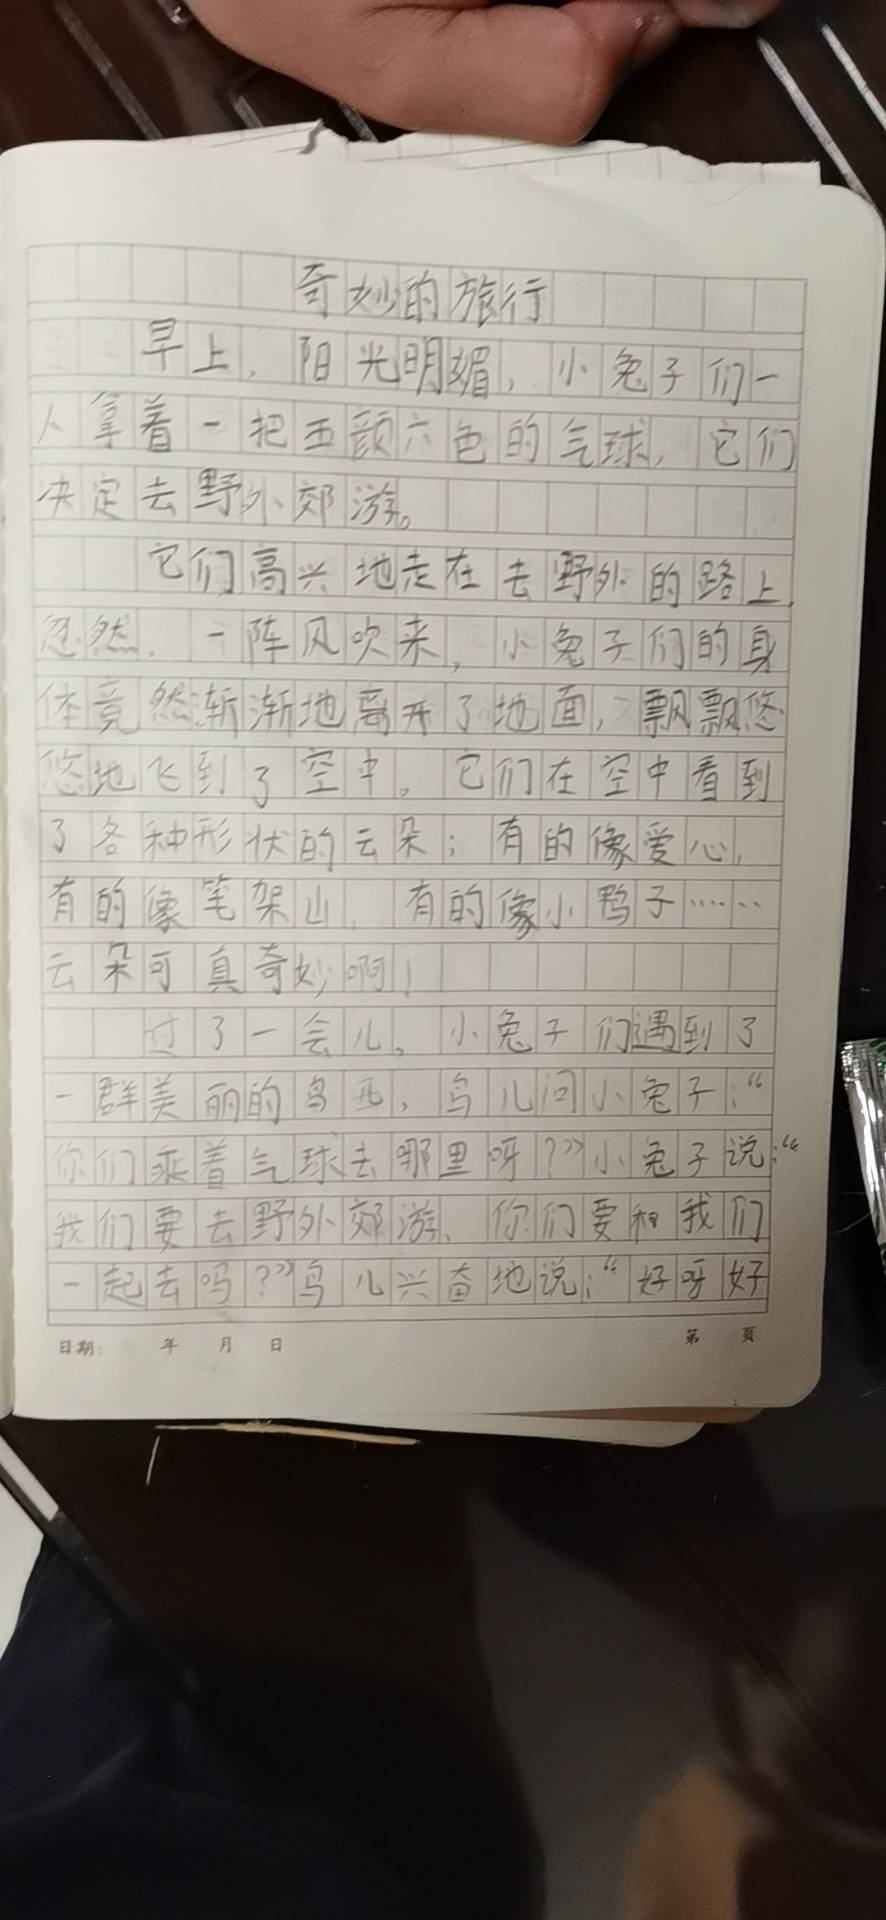 奇妙的旅行
早上，阳光明媚，小兔子们一
人拿着一把五颜六色的气球，它们
决定去野外郊游。
它们高兴地走在去野外的路上，
忽然，一阵风吹来，小兔子们的身
体竟然渐渐地离开了地面，飘飘悠
悠地飞到了空中。它们在空中看到
了各种形状的云朵；有的像爱心，
有的像笔架山，有的像小鸭子……
云朵可真奇妙啊！
过了一会儿，小兔子们遇到了
一群美丽的鸟，鸟儿问小兔子：“
你们乘着气球去哪里呀？”小兔子说：“
我们要去野外郊游，你们要和我们
一起去吗？”鸟儿兴奋地说：“好呀好
日期： 年 月 日
第 页